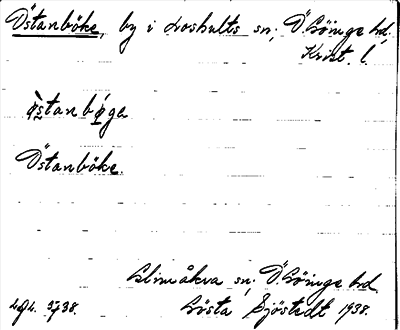 Östanböke, by i Loshults sn, Ö. Göinge hd,
Krist. l.
östanböga
Östanböke.
Glimåkra sn, Ö. Göinge hd
Gösta Sjöstedt 1938.